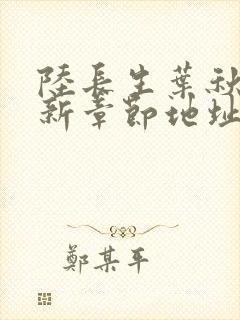 陸長生葉秋
新章節地址
鄭某平